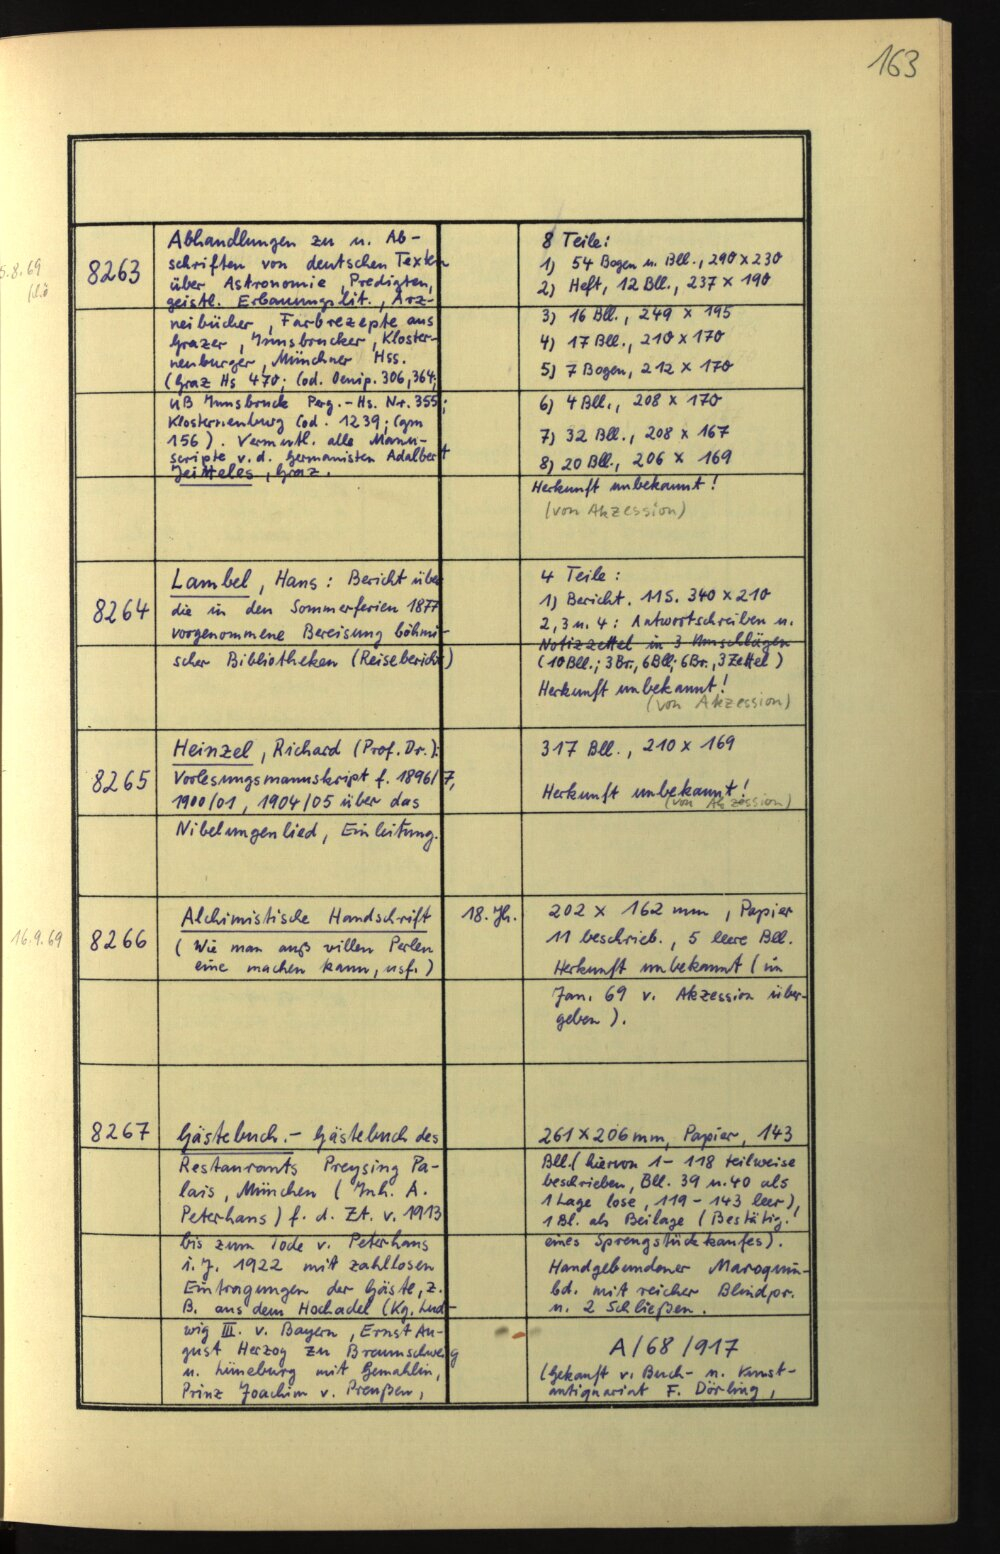 163
5.8.69
8263
Abhandlungen zu u. Ab-
schriften von deutschen Texten
über Astronomie, Predigten,
geistl. Erbauungslit., Arz-
neibücher, Farbrezepte aus
Grazer, Innsbrucker, Kloster-
neuburger, Münchner Hss.
(Graz Hs 470; Cod. Oenip. 306, 364;
UB Innsbruck Perg.-Hs. Nr. 355;
Klosterneuburg Cod. 1239; Cgm
156). Vermutl. alle Manu-
scripte v. d. Germanisten Adalbert
Jeitteles, Graz.
8 Teile:
1) 54 Bogen u. Bll., 290 x 230
2) Heft, 12 Bll., 237 x 190
3) 16 Bll., 249 x 195
4) 17 Bll., 210 x 170
5) 7 Bogen, 212 x 170
6) 4 Bll., 208 x 170
7) 32 Bll., 208 x 167
8) 20 Bll., 206 x 169
Herkunft unbekannt!
(von Akzession)
8264
Lambel, Hans: Bericht über
die in den Sommerferien 1877
vorgenommene Bereisung böhmi-
scher Bibliotheken (Reisebericht)
4 Teile:
1) Bericht. 11 S. 340 x 210
2, 3 u. 4: Antwortschreiben u.
Notizzettel in 3 Umschlägen
(10 Bll.; 3 Br., 6 Bll; 6 Br., 3 Zettel)
Herkunft unbekannt!
(von Akzession)
8265
Heinzel, Richard (Prof. Dr.):
Vorlesungsmanuskript f. 1896/7,
1900/01, 1904/05 über das
Nibelungenlied, Einleitung.
317 Bll., 210 x 169
Herkunft unbekannt!
(von Akzession)
16.9.69
8266
Alchimistische Handschrift
(Wie man auß villen Perlen
eine machen kann, usf.)
18. Jh.
202 x 162 mm, Papier
11 beschrieb., 5 leere Bll.
Herkunft unbekannt (im
Jan. 69 v. Akzession über-
geben).
8267
Gästebuch.- Gästebuch des
Restaurants Preysing Pa-
lais, München (Inh. A.
Peterhans) f. d. Zt. v. 1913
bis zum Tode v. Peterhans
i. J. 1922 mit zahllosen
Eintragungen der Gäste, z.
B. aus dem Hochadel (Kg. Lud-
wig III. v. Bayern, Ernst Au-
gust Herzog zu Braunschweig
u. Lüneburg mit Gemahlin,
Prinz Joachim v. Preußen,
261 x 206 mm, Papier, 143
Bll. (hievon 1-118 teilweise
beschrieben, Bll. 39 u. 40 als
1 Lage lose, 119-143 leer),
1 Bl. als Beilage (Bestätig.
eines Sprengstückkaufes).
Handgebundener Maroquin-
bd. mit reicher Blindpr.
u. 2 Schließen.
A/68/917
(Gekauft v. Buch- u. Kunst-
antiquariat F. Dörling,